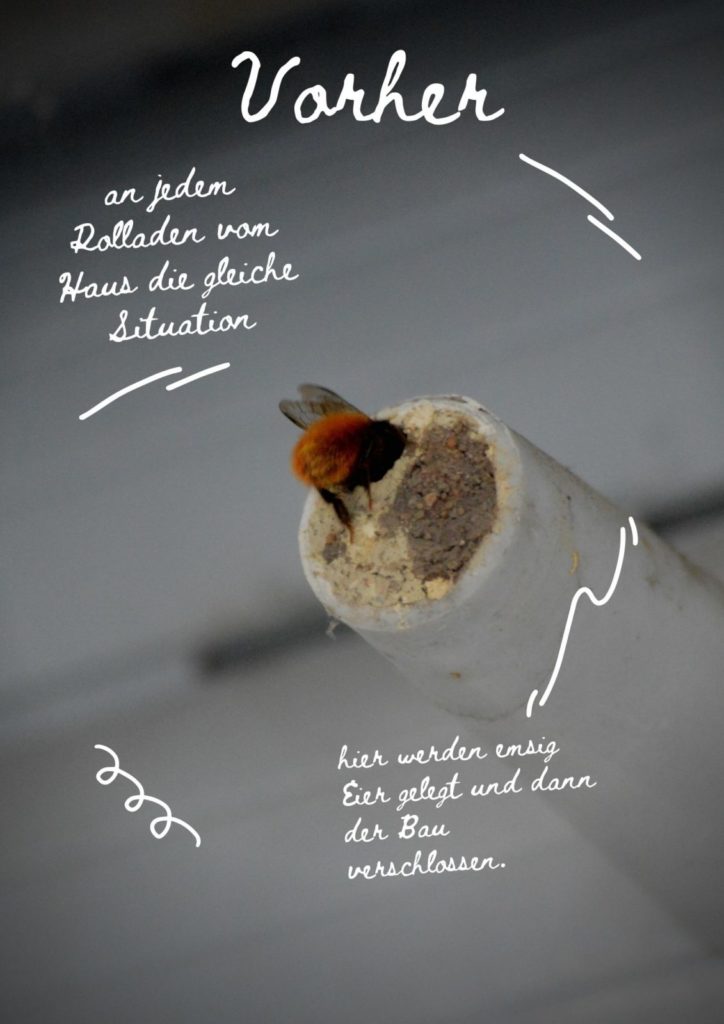 Vorher
an jedem
Rolladen vom
Haus die gleiche
Situation
hier werden emsig
Eier gelegt und dann
der Bau
verschlossen.